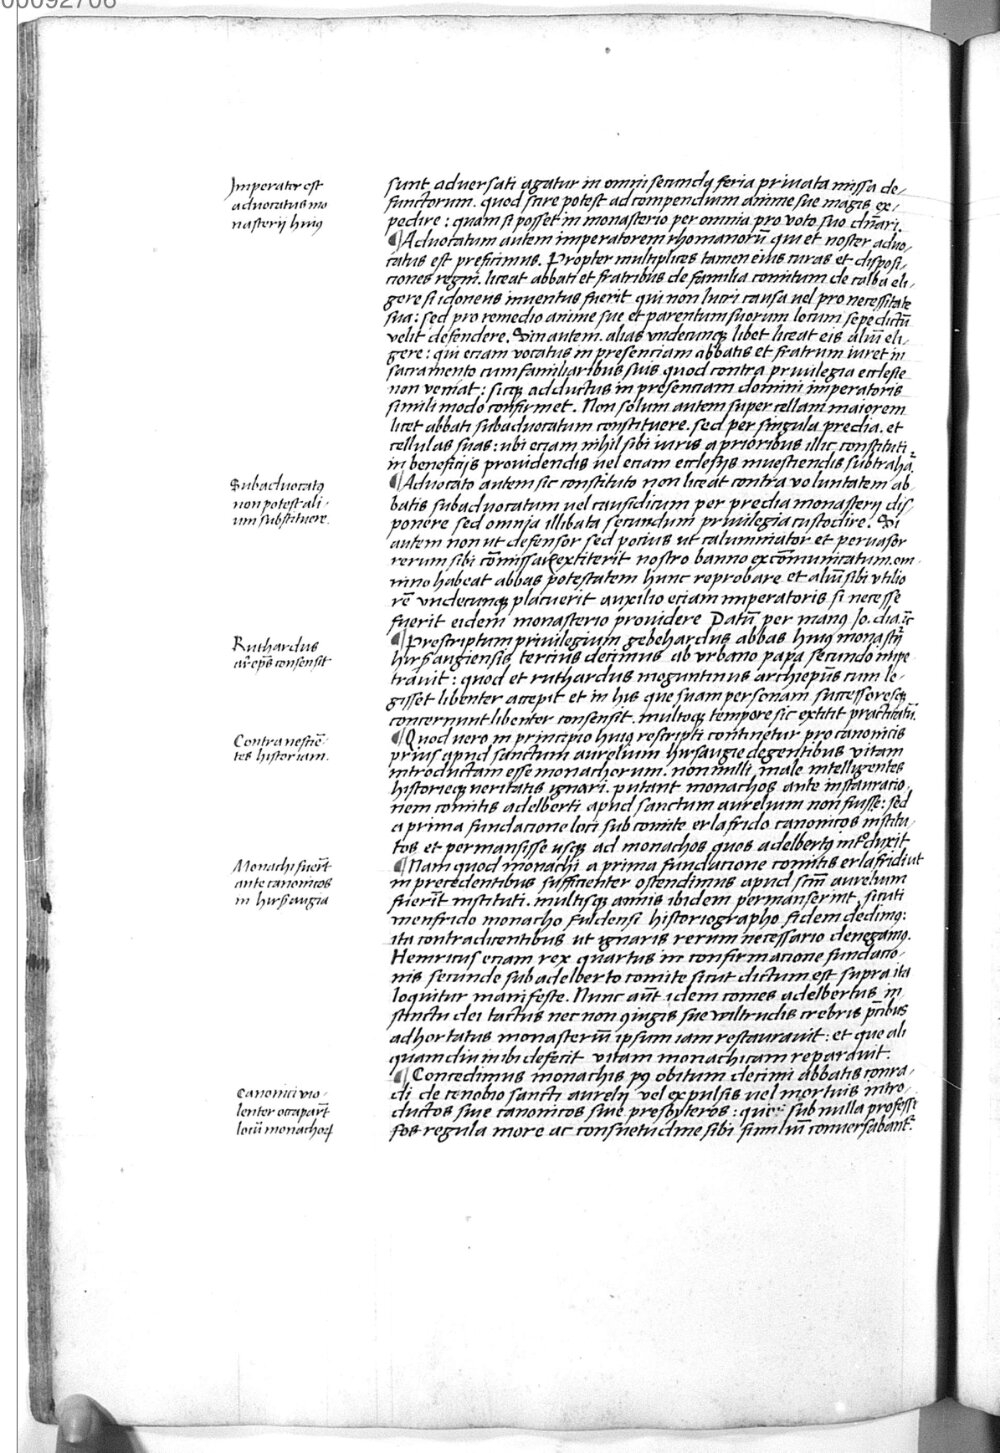 00092706
Imperator est
aduocatus mo
nasterij huiꝰ
sunt aduersati agatur in omni secunda feria priuata missa de-
functorum. quod scire potest ad compendium anime sue magis ex-
pedire: quam si posset in monasterio per omnia pro voto suo dn̄ari.
¶ Aduocatum autem imperatorem rhomanorū qui et noster aduo-
catus est preficimus. Propter multiplices tamen eius curas et disposi-
ciones regni. liceat abbati et fratribus de familia comitum de calba eli-
gere si idoneus inuentus fuerit qui non lucri causa uel pro necessitate
sua: sed pro remedio anime sue et parentum suorum locum sepedictū
velit defendere. Sin autem. alias vndecunqꝫ libet liceat eis aliū eli-
gere: qui eciam vocatus in presenciam abbatis et fratrum iuret in
sacramento cum familiaribus suis quod contra priuilegia ecclesie
non veniat: sicqꝫ adductus in presenciam domini imperatoris
simili modo confirmet. Non solum autem super cellam maiorem
licet abbati subaduocatum constituere. sed per singula predia. et
cellulas suas: ubi eciam nihil sibi iuris a prioribus illic constituti
in beneficijs prouidendis uel eciam ecclesijs inuestiendis subtrahāt
Subaduocatꝰ
non potest ali-
um substituere.
¶ Aduocato autem sic constituto non liceat contra voluntatem ab-
batis subaduocatum uel causidicum per predia monasterij dis-
ponere sed omnia illibata secundum priuilegia custodire. Si
autem non ut defensor sed pocius ut calumniator et peruasor
rerum sibi cōmissarꝝ extiterit nostro banno excōmunicatum. om-
nino habeat abbas potestatem hunc reprobare et aliū sibi vtilio
rē vndecunqꝫ placuerit auxilio eciam imperatoris si necesse
fuerit eidem monasterio prouidere Datū per manꝰ Jo. dia. ꝛc̄
Ruthardus
archiep̄s consensit
¶ Prescriptum priuilegium gebehardus abbas huiꝰ monastrij
hirsaugiensis tercius decimus ab vrbano papa secundo impe
trauit: quod et ruthardus moguntinus archiep̄us cum le-
gisset libenter accepit et in hijs que suam personam. successoresqꝫ
concernunt libenter consensit. multoqꝫ tempore sic extitit practicatū.
Contra nescien-
tes historiam.
¶ Quod vero in principio huiꝰ rescripti continetur pro canonicis
prius apud sanctum aurelium hirsaugie degentibus vitam
introductam esse monachorum. nonnulli male intelligentes
historieqꝫ ueritatis ignari. putant monachos ante instauracio-
nem comitis adelberti apud sanctum aurelium non fuisse: sed
a prima fundacione loci sub comite erlafrido canonicos institu-
tos et permansisse usqꝫ ad monachos quos adelbertꝰ intʳoduxit
Monachi fuerūt
ante canonicos
in hirsaugia
¶ Nam quod monachi a prima fundacione comitis erlafridi ut
in precedentibus sufficienter ostendimus apud scm̄ aurelium
fuerint instituti. multisqꝫ annis ibidem permanserint. sicuti
menfrido monacho fuldensi historiographo fidem dedimꝰ:
ita contradicentibus ut ignaris rerum necessario denegamꝰ.
Henricus eciam rex quartus in confirmacione fundacio-
nis secunde sub adelberto comite sicut dictum est supra ita
loquitur manifeste. Nunc aūt idem comes adelbertus in-
stinctu dei tactus nec non ꝯiugis sue wiltrudis crebris p̄cibus
adhortatus monasteriū ipsum iam restaurauit: et que ali
quamdiu inibi defecit vitam monachicam reparauit.
¶ Concedimus monachis pꝰ obitum decimi abbatis conra-
Canonici vio-
lenter occaparūt
locū monachorꝝ
di de cenobio sancti aurelij vel expulsis uel mortuis intro-
ductos siue canonicos siue presbyteros: qui sub nulla professi
fos regula more ac consuetudine sibi similiū conuersabantʳ.